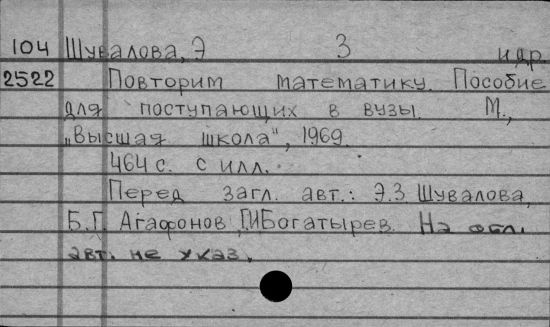 104 Шувалова, Э З и др.
2522 Повторим математику. Пособие
для поступающих в вузы. М.,
"Высшая школа", 1969.
464 с. с илл.
Перед загл. авт.: Э.З. Шувалова,
Б.Г. Агафонов, Г.И Богатырев. На обл.
авт. не указ.